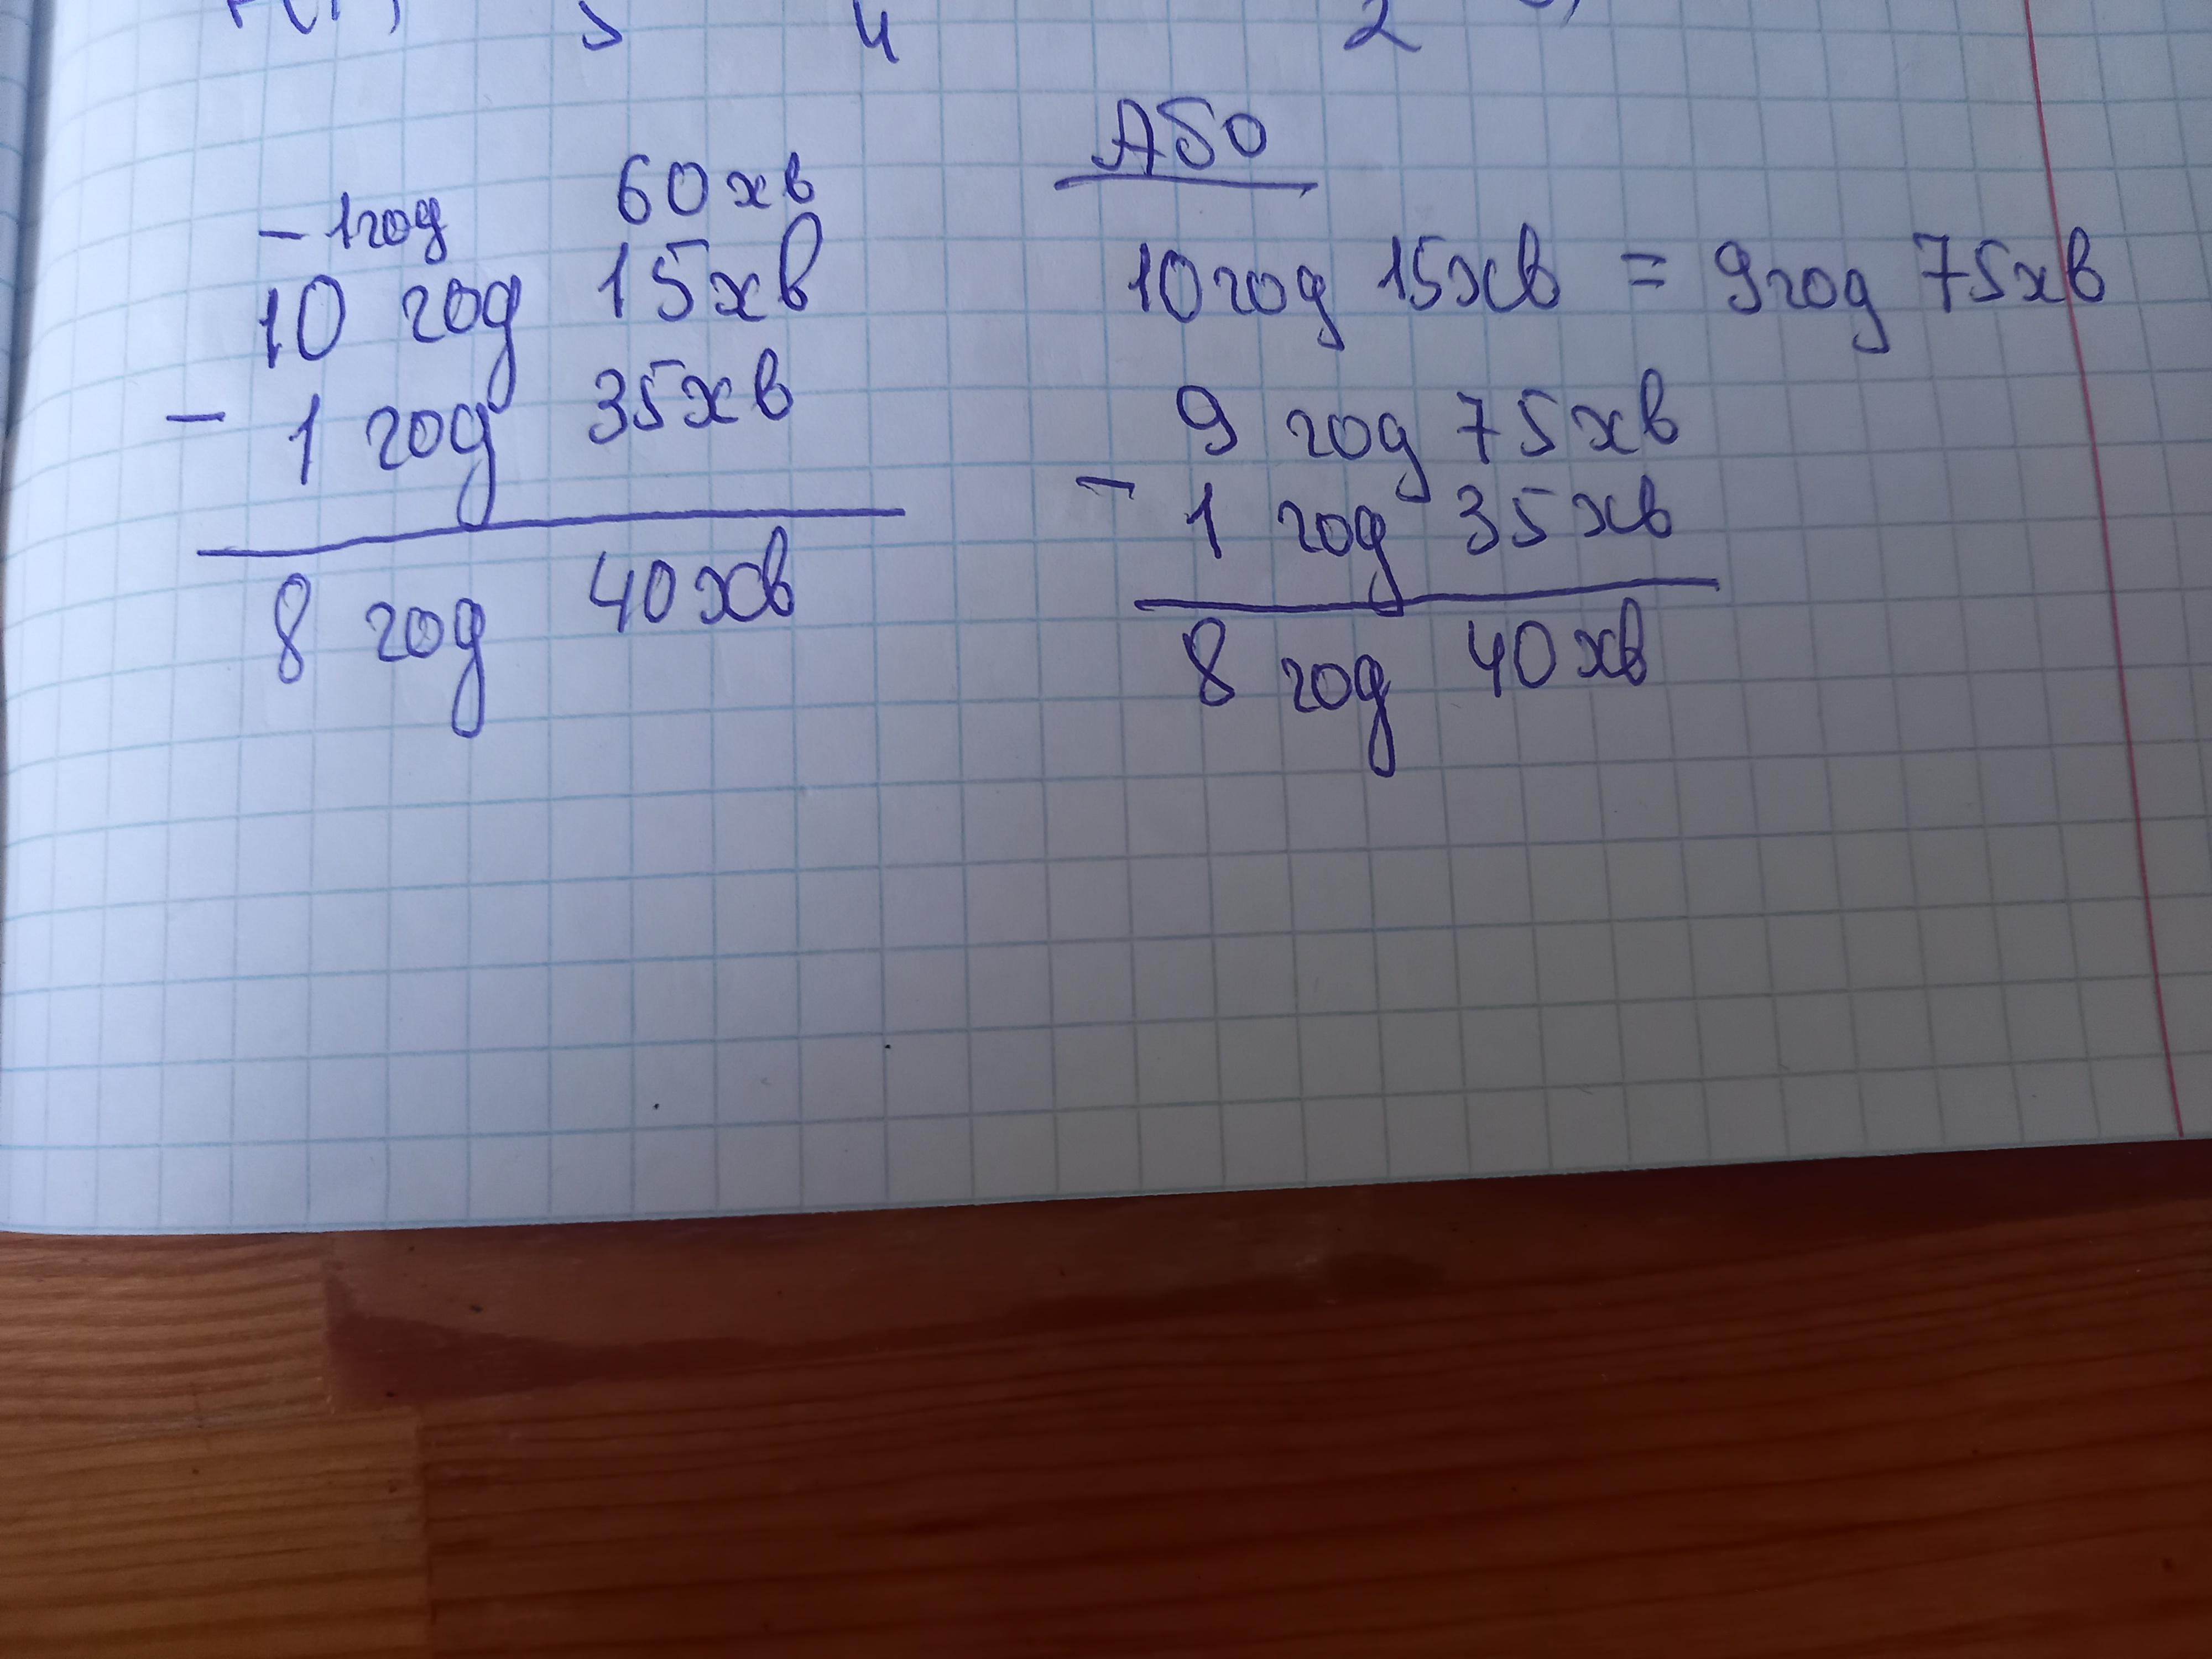 - 1год 60хв
10 год 15хв
- 1 год 35хв
8 год 40хв
АБО
10год 15хв = 9год 75хв
9 год 75хв
- 1 год 35хв
8 год 40хв